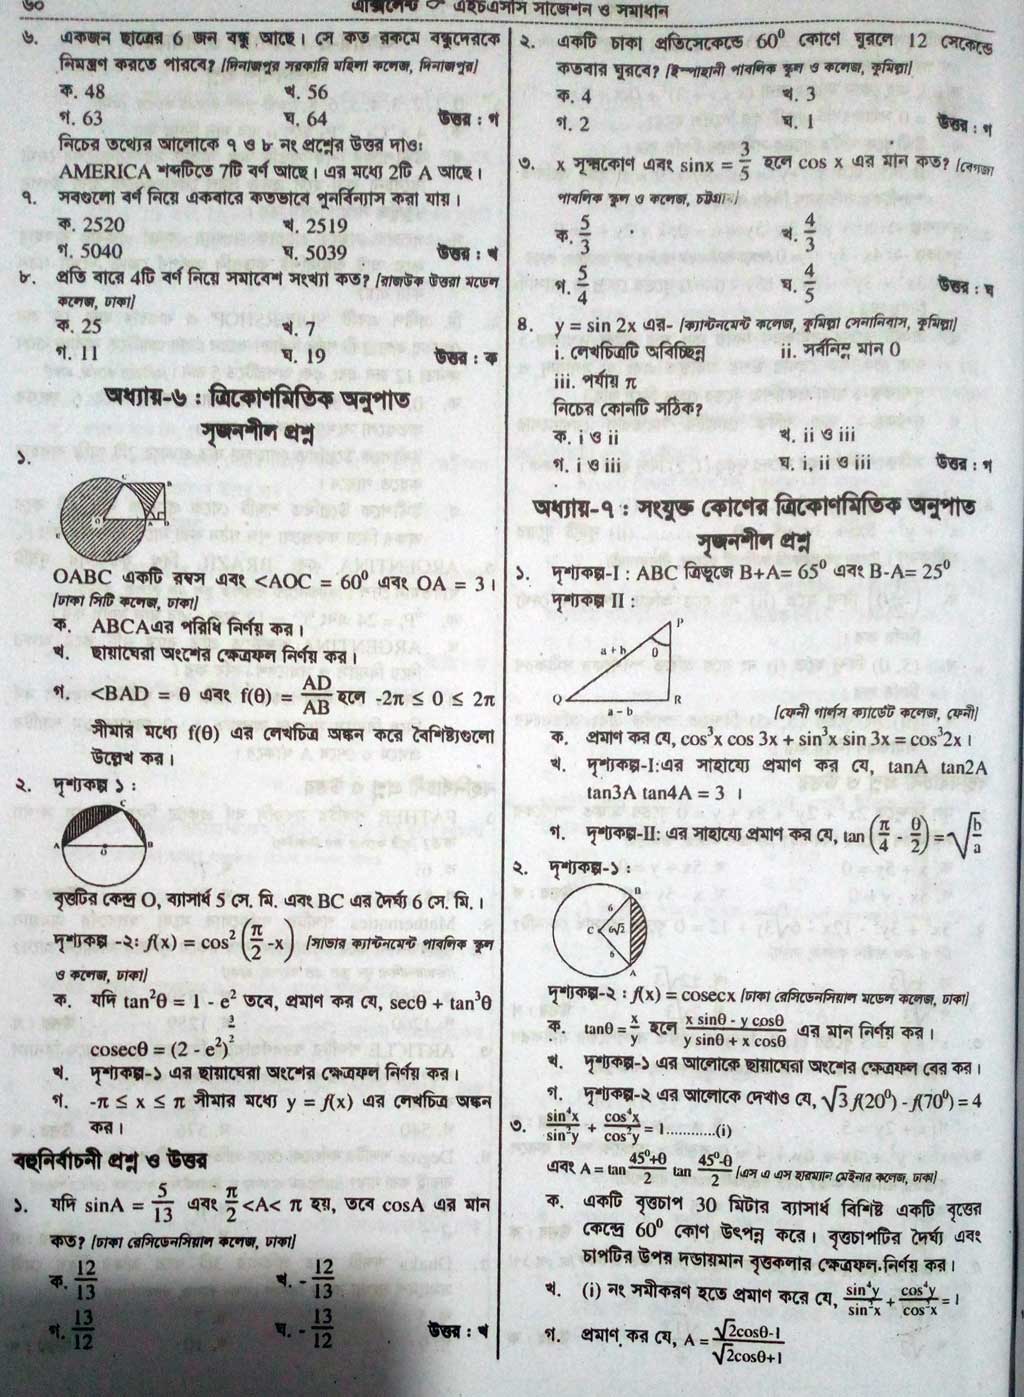 ৬০
এক্সিলেন্ট এইচএসসি সাজেশন ও সমাধান
৬. একজন ছাত্রের 6 জন বন্ধু আছে। সে কত রকমে বন্ধুদেরকে
নিমন্ত্রণ করতে পারবে? [দিনাজপুর সরকারি মহিলা কলেজ, দিনাজপুর]
ক. 48 খ. 56
গ. 63 ঘ. 64 উত্তর : গ
নিচের তথ্যের আলোকে ৭ ও ৮ নং প্রশ্নের উত্তর দাও:
AMERICA শব্দটিতে 7টি বর্ণ আছে। এর মধ্যে 2টি A আছে।
৭. সবগুলো বর্ণ নিয়ে একবারে কতভাবে পুনর্বিন্যাস করা যায়।
ক. 2520 খ. 2519
গ. 5040 ঘ. 5039 উত্তর : খ
৮. প্রতি বারে 4টি বর্ণ নিয়ে সমাবেশ সংখ্যা কত? [রাজউক উত্তরা মডেল
কলেজ, ঢাকা]
ক. 25 খ. 7
গ. 11 ঘ. 19 উত্তর : ক
অধ্যায়-৬ : ত্রিকোণমিতিক অনুপাত
সৃজনশীল প্রশ্ন
১.
C B
O A D
E
OABC একটি রম্বস এবং <AOC = 60⁰ এবং OA = 3।
[ঢাকা সিটি কলেজ, ঢাকা]
ক. ABCAএর পরিধি নির্ণয় কর।
খ. ছায়াঘেরা অংশের ক্ষেত্রফল নির্ণয় কর।
গ. <BAD = θ এবং f(θ) = AD/AB হলে -2π ≤ 0 ≤ 2π
সীমার মধ্যে f(θ) এর লেখচিত্র অঙ্কন করে বৈশিষ্ট্যগুলো
উল্লেখ কর।
২. দৃশ্যকল্প ১ :
C
A O B
বৃত্তটির কেন্দ্র O, ব্যাসার্ধ 5 সে. মি. এবং BC এর দৈর্ঘ্য 6 সে. মি.।
দৃশ্যকল্প -২: f(x) = cos² (π/2 -x) [সাভার ক্যান্টনমেন্ট পাবলিক স্কুল
ও কলেজ, ঢাকা]
ক. যদি tan²θ = 1 - e² তবে, প্রমাণ কর যে, secθ + tan³θ
cosecθ = (2 - e²)^(3/2)
খ. দৃশ্যকল্প-১ এর ছায়াঘেরা অংশের ক্ষেত্রফল নির্ণয় কর।
গ. -π ≤ x ≤ π সীমার মধ্যে y = f(x) এর লেখচিত্র অঙ্কন
কর।
বহুনির্বাচনী প্রশ্ন ও উত্তর
১. যদি sinA = 5/13 এবং π/2 <A< π হয়, তবে cosA এর মান
কত? [ঢাকা রেসিডেনসিয়াল কলেজ, ঢাকা]
ক. 12/13 খ. - 12/13
গ. 13/12 ঘ. - 13/12 উত্তর : খ
২. একটি চাকা প্রতিসেকেন্ডে 60⁰ কোণে ঘুরলে 12 সেকেন্ডে
কতবার ঘুরবে? [ইস্পাহানী পাবলিক স্কুল ও কলেজ, কুমিল্লা]
ক. 4 খ. 3
গ. 2 ঘ. 1 উত্তর : গ
৩. x সূক্ষ্মকোণ এবং sinx = 3/5 হলে cos x এর মান কত? [বেপজা
পাবলিক স্কুল ও কলেজ, চট্টগ্রাম]
ক. 5/3 খ. 4/3
গ. 5/4 ঘ. 4/5 উত্তর : ঘ
৪. y = sin 2x এর- [ক্যান্টনমেন্ট কলেজ, কুমিল্লা সেনানিবাস, কুমিল্লা]
i. লেখচিত্রটি অবিচ্ছিন্ন ii. সর্বনিম্ন মান 0
iii. পর্যায় π
নিচের কোনটি সঠিক?
ক. i ও ii খ. ii ও iii
গ. i ও iii ঘ. i, ii ও iii উত্তর : গ
অধ্যায়-৭ : সংযুক্ত কোণের ত্রিকোণমিতিক অনুপাত
সৃজনশীল প্রশ্ন
১. দৃশ্যকল্প-I : ABC ত্রিভুজে B+A= 65⁰ এবং B-A= 25⁰
দৃশ্যকল্প II :
P
a+b θ
Q R
a – b
[ফেনী গার্লস ক্যাডেট কলেজ, ফেনী]
ক. প্রমাণ কর যে, cos³x cos 3x + sin³x sin 3x = cos³2x।
খ. দৃশ্যকল্প-I:এর সাহায্যে প্রমাণ কর যে, tanA tan2A
tan3A tan4A = 3 ।
গ. দৃশ্যকল্প-II: এর সাহায্যে প্রমাণ কর যে, tan (π/4 - θ/2) = √(b/a)
২. দৃশ্যকল্প-১ :
B
6
C 6√2
6
A
দৃশ্যকল্প-২ : f(x) = cosecx [ঢাকা রেসিডেনসিয়াল মডেল কলেজ, ঢাকা]
ক. tanθ = x/y হলে (x sinθ - y cosθ)/(y sinθ + x cosθ) এর মান নির্ণয় কর।
খ. দৃশ্যকল্প-১ এর আলোকে ছায়াঘেরা অংশের ক্ষেত্রফল বের কর।
গ. দৃশ্যকল্প-২ এর আলোকে দেখাও যে, √3 f(20⁰) - f(70⁰) = 4
৩. sin⁴x/sin²y + cos⁴x/cos²y = 1............(i)
এবং A = tan (45⁰+θ)/2 tan (45⁰-θ)/2 [এস ও এস হারম্যান মেইনার কলেজ, ঢাকা]
ক. একটি বৃত্তচাপ 30 মিটার ব্যাসার্ধ বিশিষ্ট একটি বৃত্তের
কেন্দ্রে 60⁰ কোণ উৎপন্ন করে। বৃত্তচাপটির দৈর্ঘ্য এবং
চাপটির উপর দন্ডায়মান বৃত্তকলার ক্ষেত্রফল নির্ণয় কর।
খ. (i) নং সমীকরণ হতে প্রমাণ করে যে, sin⁴y/sin²x + cos⁴y/cos²x = 1
গ. প্রমাণ কর যে, A = (√2cosθ-1)/(√2cosθ+1)